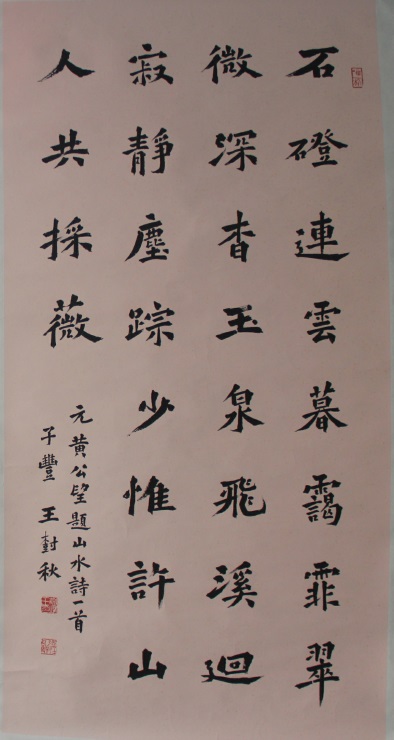 石磴連雲暮靄霏翠
微深杳玉泉飛溪迴
寂靜塵踪少惟許山
人共採薇
元黃公望題山水詩一首
子豐 王秋